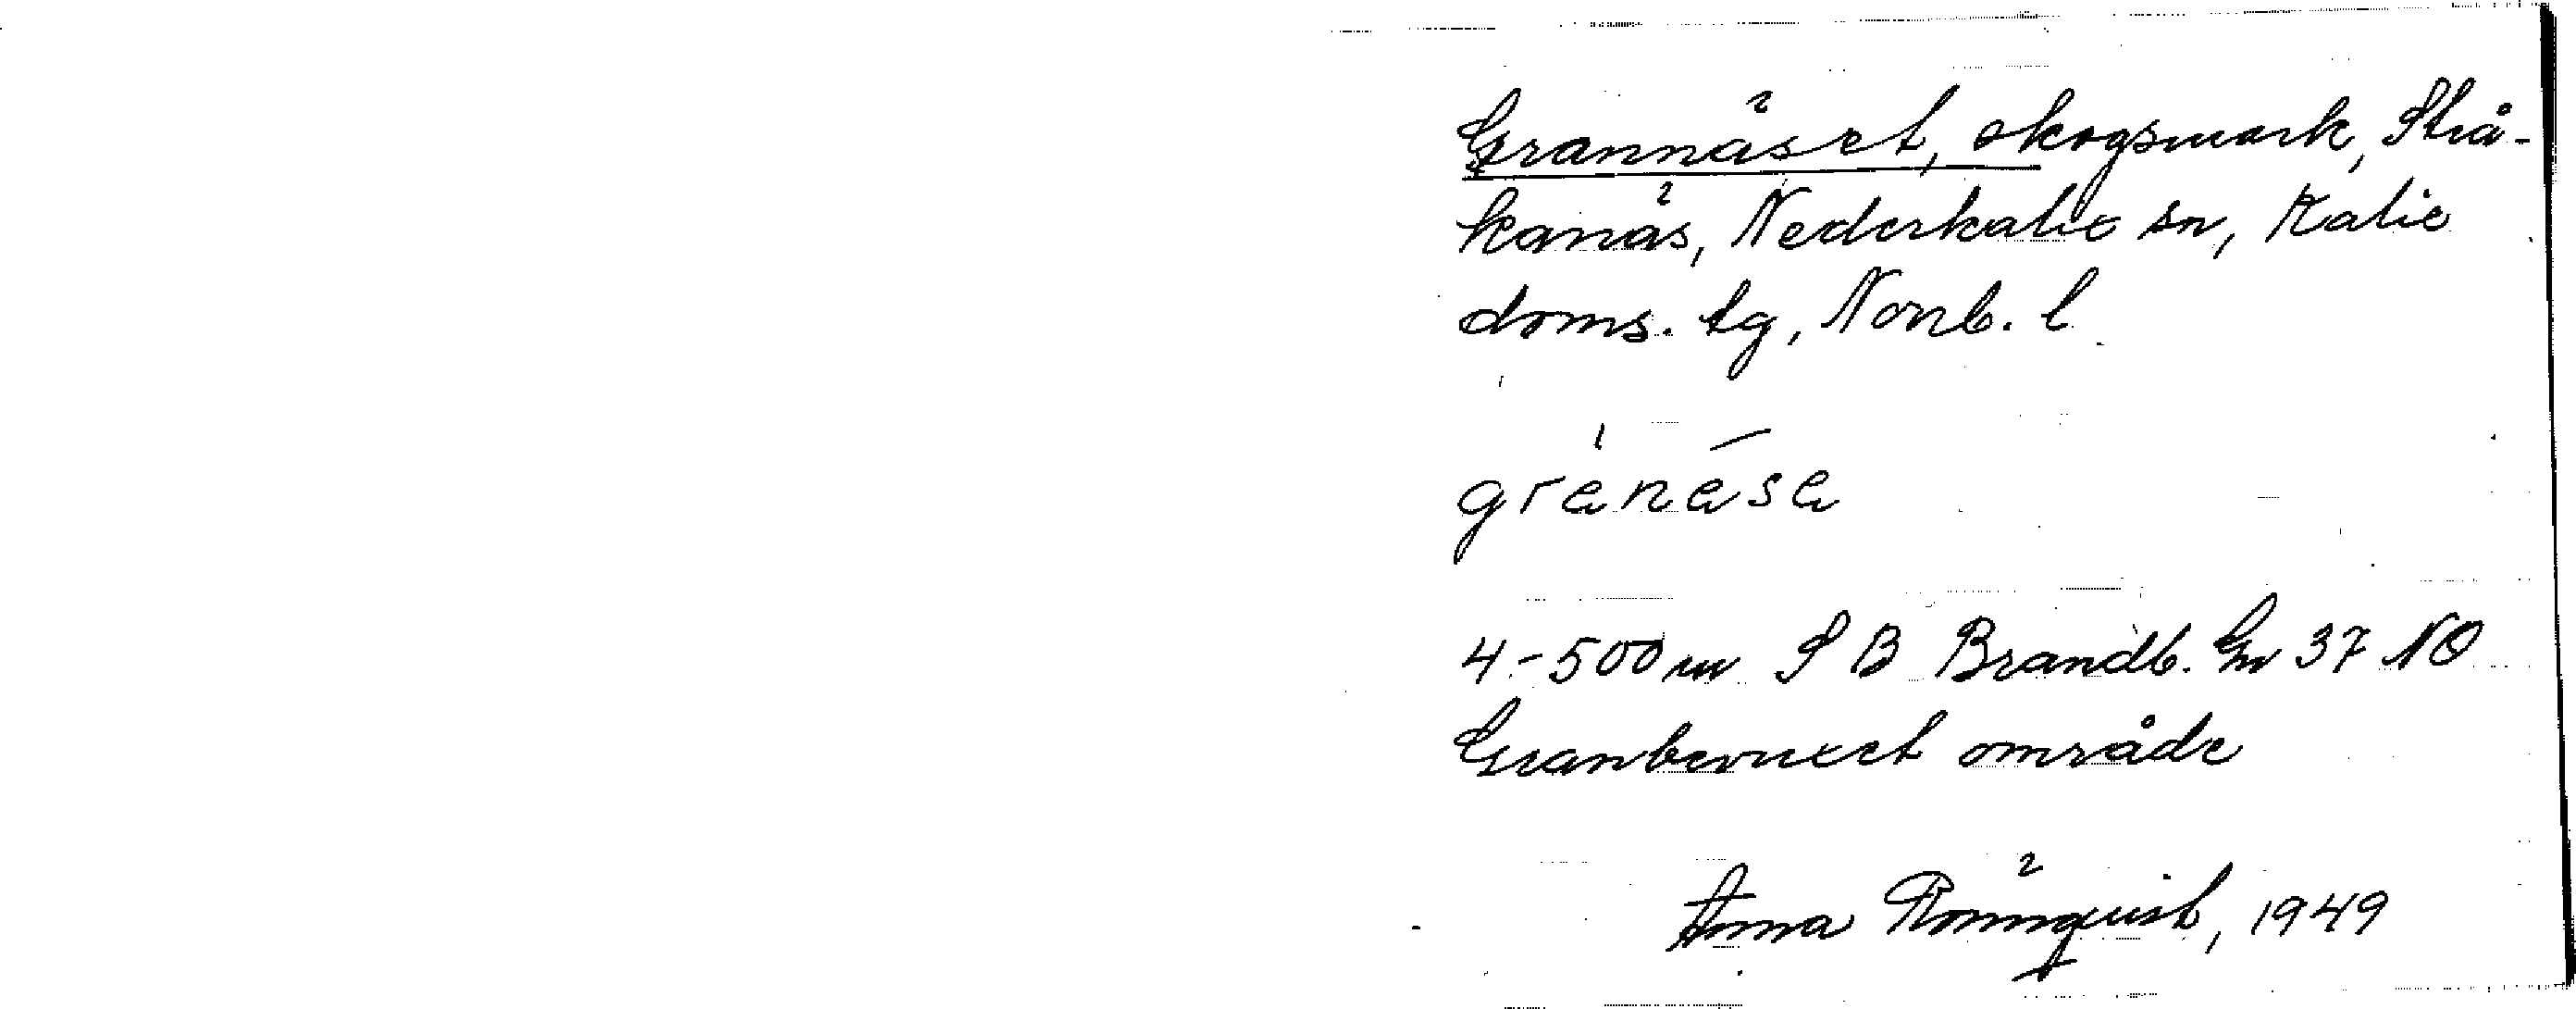 Grannäset, skogsmark, Strå-
kanäs, Nederkalix sn, Kalix
doms. tg, Norrb. l
4-500 m S B Brandb. Gr 37 NO
Granbevuxet område
Anna Rönnquist, 1949